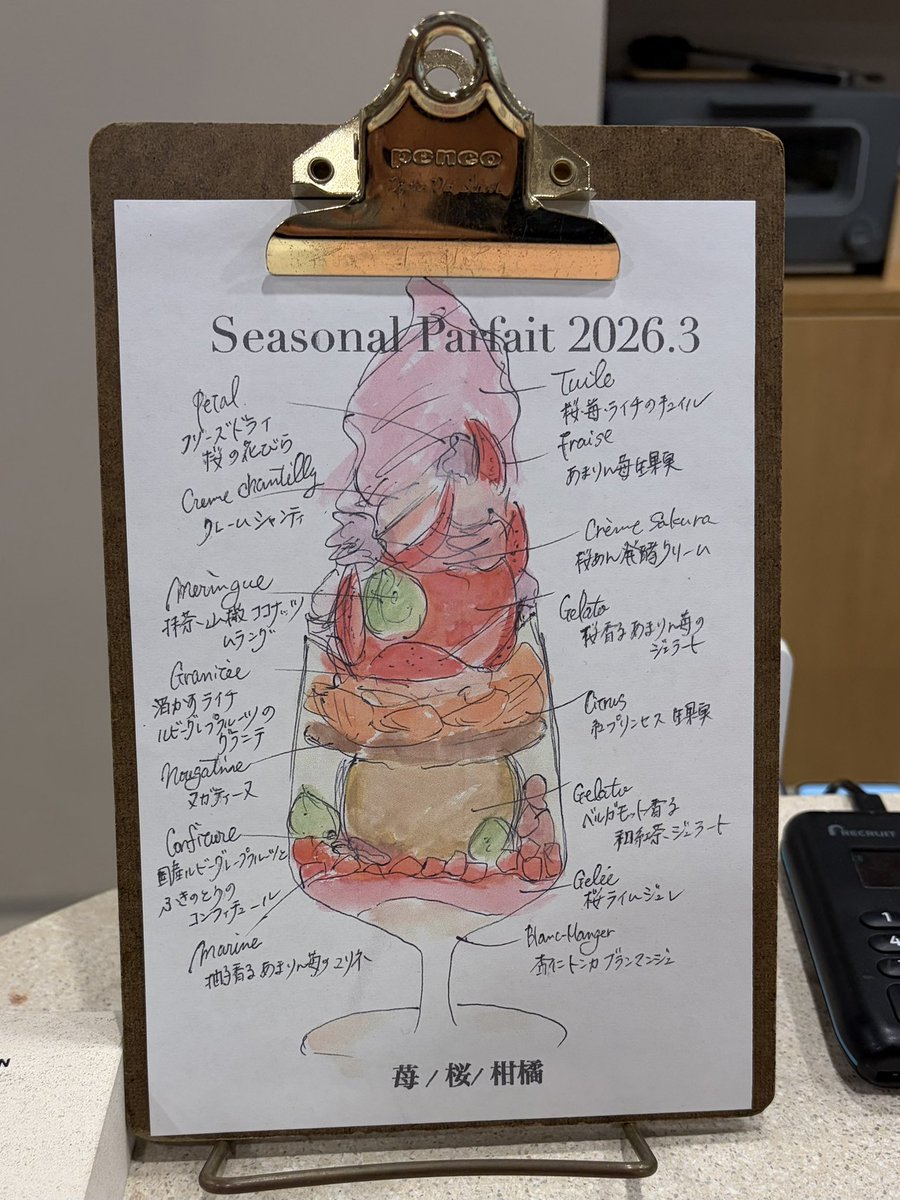 penco
Seasonal Parfait 2026.3
Petal
フリーズドライ
桜の花びら
Creme chantilly
クレームシャンティ
Meringue
抹茶・山椒 ココナッツ
ムラング
Granitée
酒かすライチ
ルビーグレープルーツの
グラニテ
Nougatine
ヌガティーヌ
Confiture
国産ルビーグレープフルーツと
ふきのとうの
コンフィチュール
Marine
柚香る あまりん苺のマリネ
Tuile
桜・苺・ライチのチュイル
Fraise
あまりん苺生果実
Crème Sakura
桜あん発酵クリーム
Gelato
桜香るあまりん苺の
ジェラート
Citrus
紅プリンセス 生果実
Gelato
ベルガモット香る
和紅茶ジェラート
Gelée
桜ライムジュレ
Blanc-Manger
杏仁トンカブランマンジェ
苺 / 桜 / 柑橘
RECRUIT
1
4